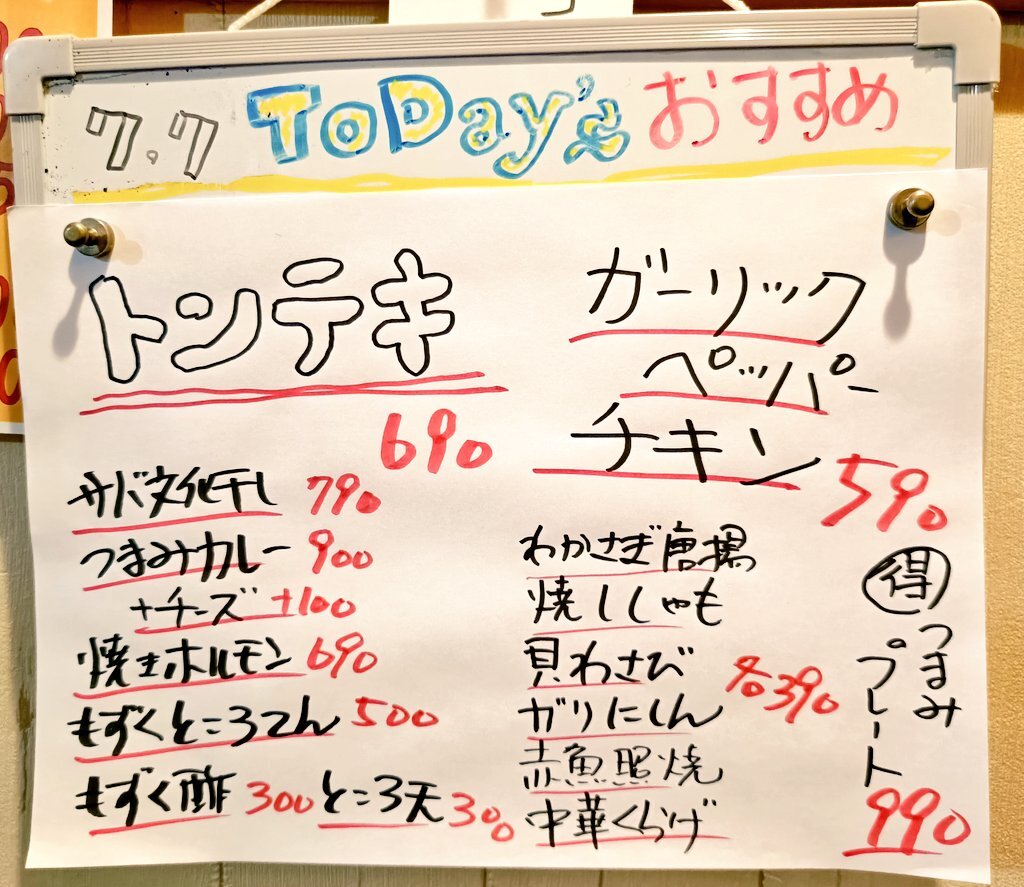 7.7 ToDay's おすすめ
トンテキ
690
サバ文化干し 790
つまみカレー 900
+チーズ +100
焼きホルモン 690
もずくところてん 500
もずく酢 300 ところ天 300
ガーリック
ペッパー
チキン
590
わかさぎ唐揚
焼ししゃも
貝わさび
ガリにしん
赤魚照焼
中華くらげ
各390
得 つまみ
プレート
990